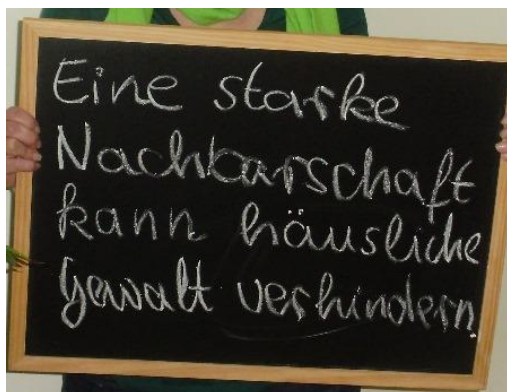 Eine starke
Nachbarschaft
kann häusliche
Gewalt verhindern.